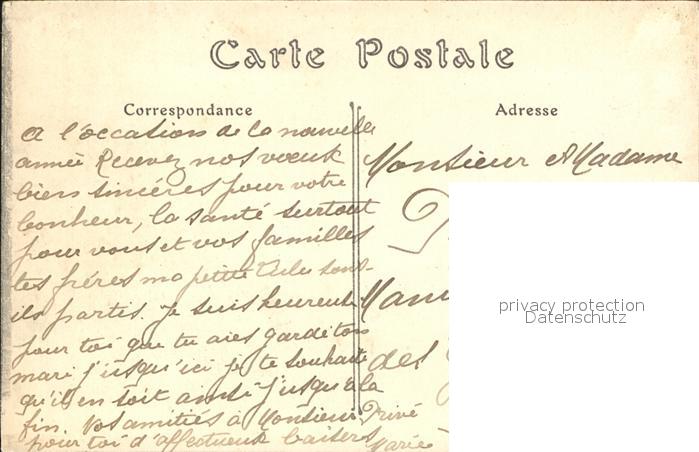 Carte Postale
Correspondance
Adresse
A l'occation de la nouvelle
année Recevez nos voeux
bien sincéres pour votre
bonheur, la santé surtout
pour vous et vos familles
tes fréres ma petite Lulu sont-
ils partis. Je suis heureuse
pour toi que tu aies gardé ton
mari j'usqu'ici je te souhaite
qu'il en soit ainsi j'usqu'a la
fin. Vos amitiés à Monsieur Privé
pour toi d'affectueux baisers
Marie
Monsieur & Madame
des
privacy protection
Datenschutz